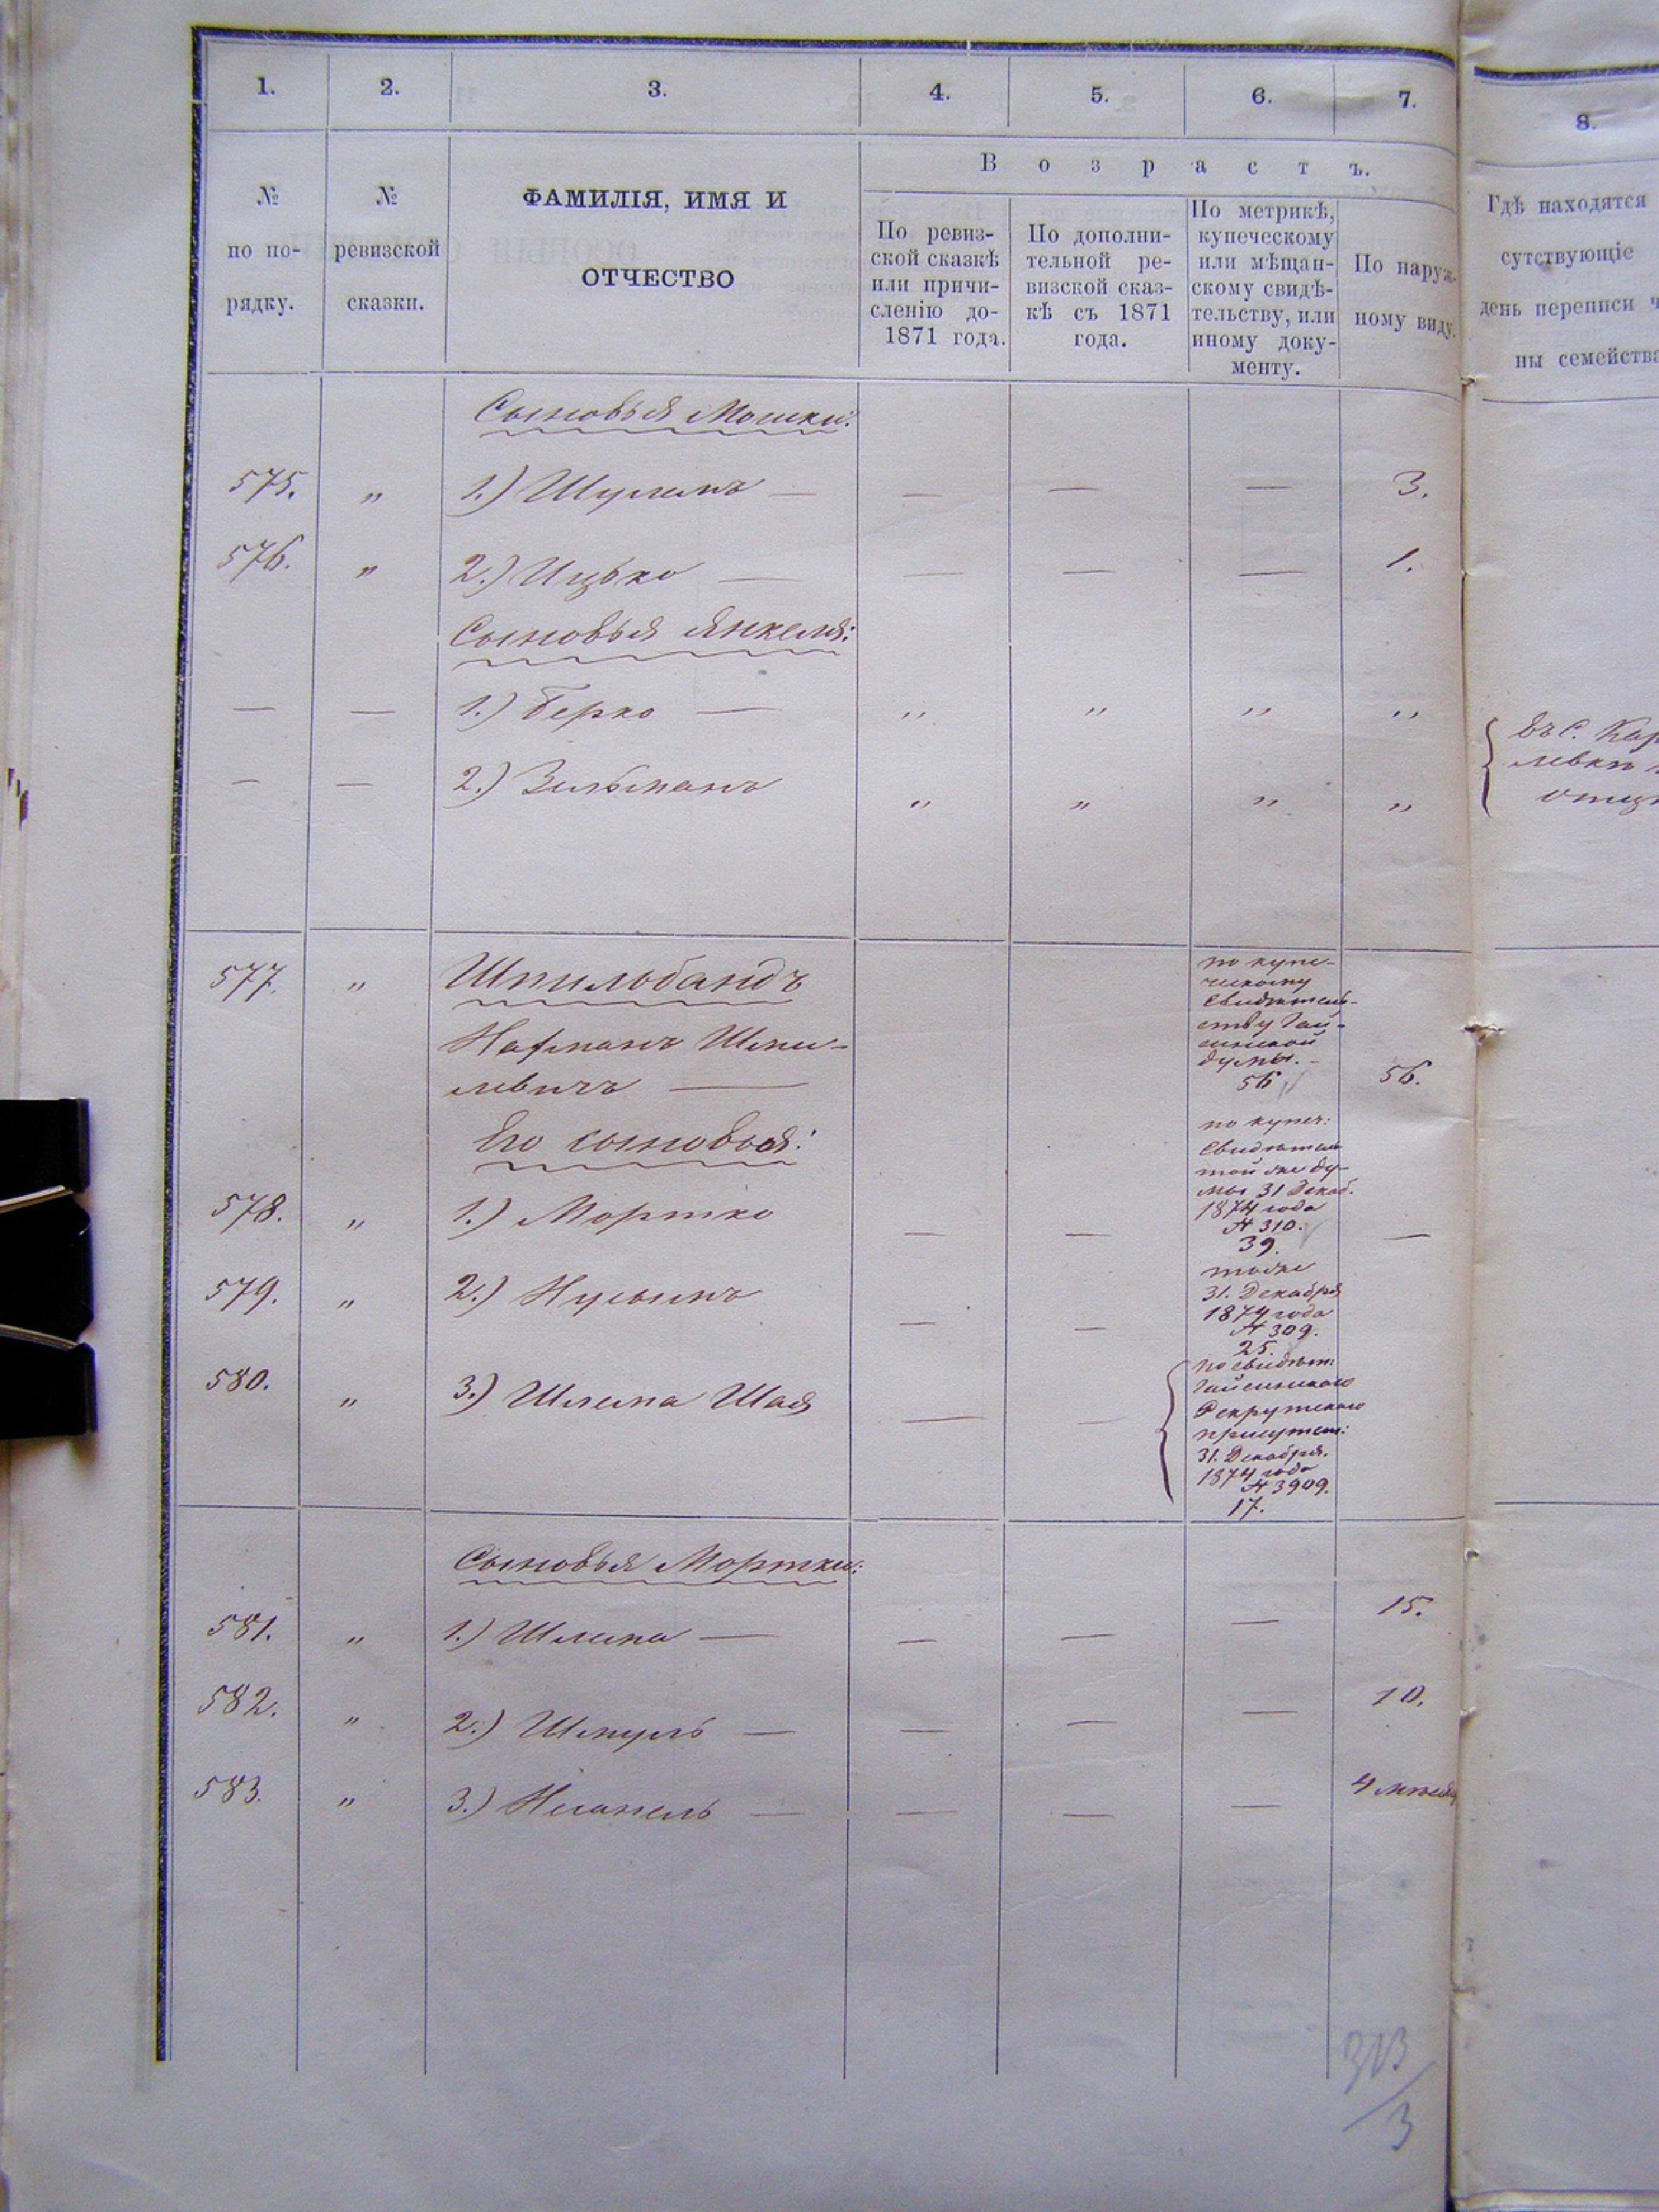 1.
2.
3.
4.
5.
6.
7.
8.
№
по по-
рядку.
№
ревизской
сказки.
ФАМИЛІЯ, ИМЯ И
ОТЧЕСТВО
Возрастъ.
По ревиз-
ской сказкѣ
или причи-
сленію до-
1871 года.
По дополни-
тельной ре-
визской сказ-
кѣ съ 1871
года.
По метрикѣ,
купеческому
или мѣщан-
скому свидѣ-
тельству, или
иному доку-
менту.
По наруж-
ному виду.
Гдѣ находятся
сутствующіе
день переписи ч
ны семейства
Сыновья Мошки:
575. „ 1.) Шулимъ — — — — 3.
576. „ 2.) Ицько — — — — 1.
Сыновья Янкеля:
— — 1.) Берко — „ „ „ „
— — 2.) Зельманъ „ „ „ „
въ с. Кар
левкѣ
отцо
577. „ Шпильбандъ
Нахманъ Шми-
левичъ —
по купе-
ческому
свидѣтель-
ству Гай-
синской
думы. -
56 56.
Его сыновья:
578. „ 1.) Мортко — — —
по купеч:
свидѣтел
той же ду-
мы 31 Декаб.
1874 года
№ 310.
39.
579. „ 2.) Нусынъ — —
тоже
31. Декабря
1874 года
№ 309.
25.
580. „ 3.) Шлема Шая — —
по свидѣт
Гайсинскаго
Рекрутскаго
присутст:
31. Декабря.
1874 года
№ 3909.
17.
Сыновья Мортки:
581. „ 1.) Шлема — — — — 15.
582. „ 2.) Шмуль — — — — 10.
583. „ 3.) — — — — 4 мѣсяц
3